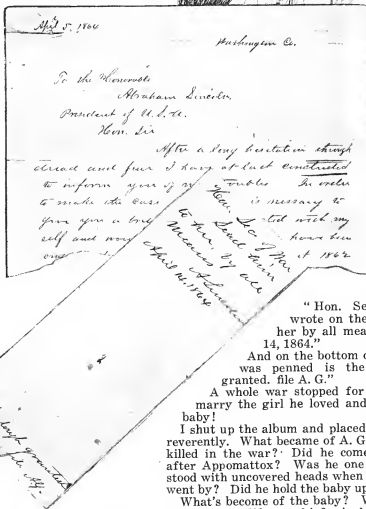 April 5. 1864
Washington Co.
To the Honorable
Abraham Lincoln.
President of U.S.A.
Hon. Sir
After a long hesitation through
dread and fear I have at last
to inform you of oubles In order
to make the case is nessary to
give you a ted with my
self and have been
1862
Hon. Sec of War
Send him
to her by all
means
A Lincoln
April 14. 1864
granted
file AG.
"Hon. Se
wrote on the
her by all mea
14, 1864."
And on the bottom o
was penned is the
granted. file A. G."
A whole war stopped for
marry the girl he loved and
baby!
I shut up the album and placed
reverently. What became of A. G
killed in the war? Did he come
after Appomattox? Was he one
stood with uncovered heads when
went by? Did he hold the baby up
What's become of the baby? W